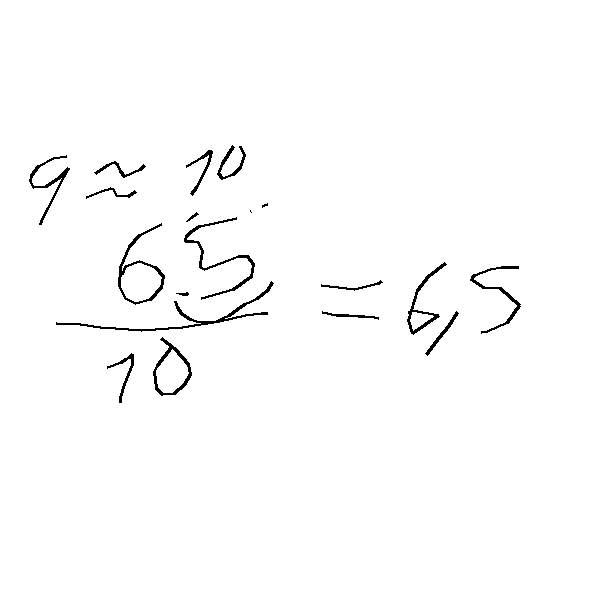 9 ≈ 10
65
10
= 6,5